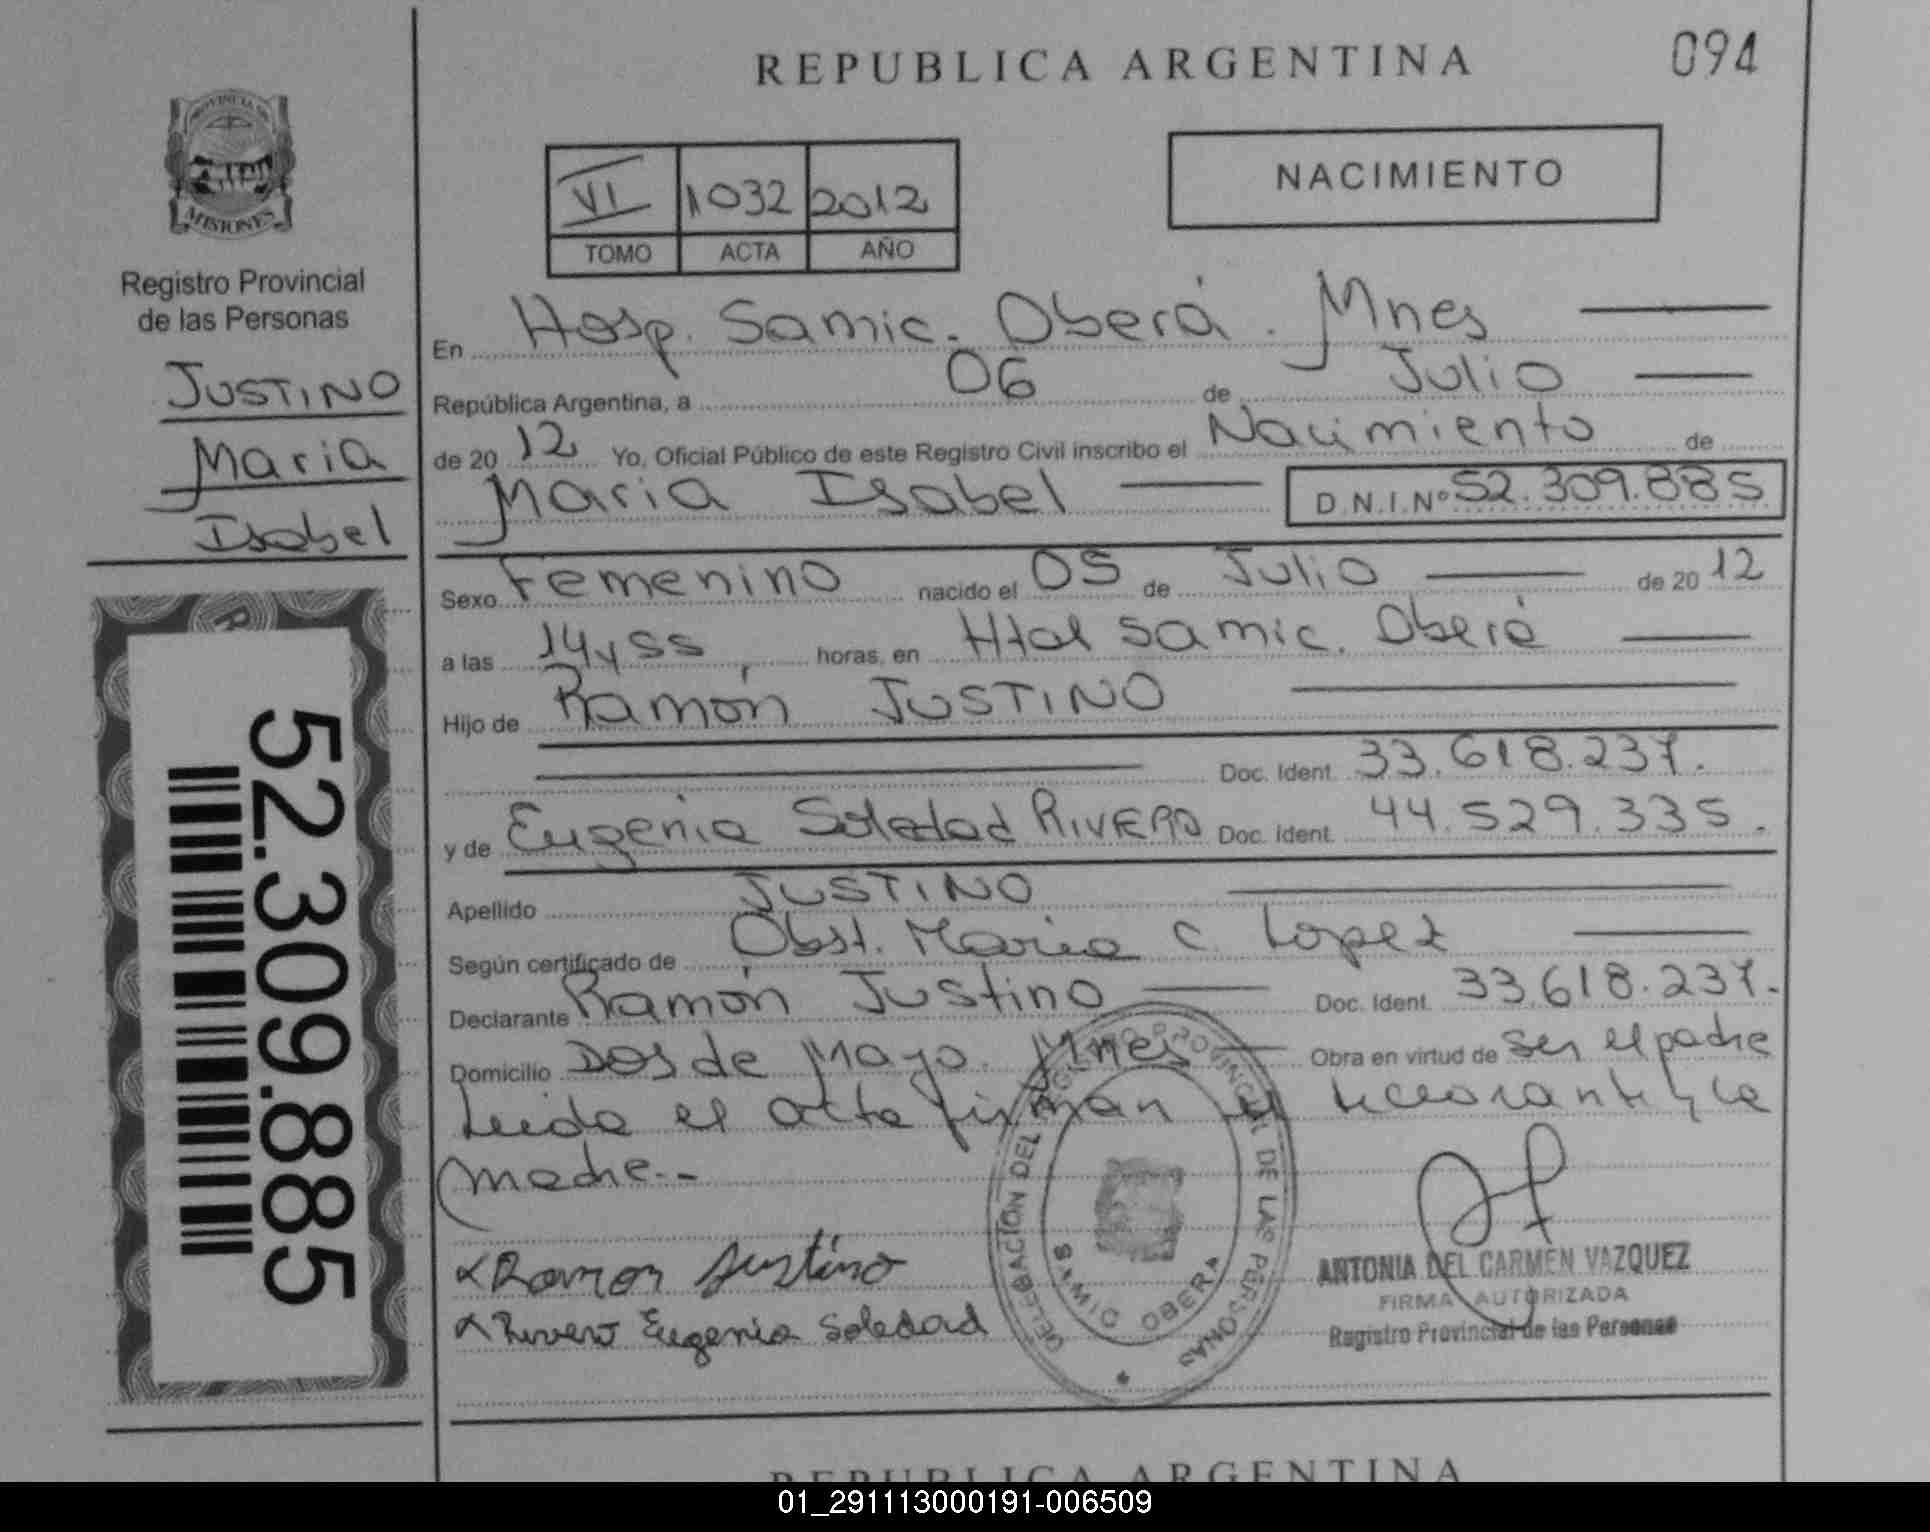 REPUBLICA ARGENTINA
094
PROVINCIA DE
MISIONES
Registro Provincial
de las Personas
JUSTINO
Maria
Isabel
52.309.885
VI 1032 2012
TOMO ACTA AÑO
NACIMIENTO
En Hosp. Samic. Oberá. Mnes
República Argentina, a 06 de Julio
de 20 12 Yo, Oficial Público de este Registro Civil inscribo el Nacimiento de
Maria Isabel D.N.I.Nº 52.309.885
Sexo Femenino nacido el 05 de Julio de 20 12
a las 14 y 55 horas, en Htal Samic. Oberá
Hijo de Ramón JUSTINO
Doc. Ident. 33.618.237.
y de Eugenia Soledad RIVERO Doc. Ident. 44.529.335.
Apellido JUSTINO
Según certificado de Obst. Maria C. Lopez
Declarante Ramón Justino Doc. Ident. 33.618.237.
Domicilio Dos de Mayo. Mnes Obra en virtud de ser el padre
Leida el acta firman el y la
madre.-
x Ramon Justino
x Rivero Eugenia Soledad
DELEGACIÓN DEL REGISTRO PROVINCIAL DE LAS PERSONAS
SAMIC OBERA
ANTONIA DEL CARMEN VAZQUEZ
FIRMA AUTORIZADA
Registro Provincial de las Personas
REPUBLICA ARGENTINA
01_291113000191-006509